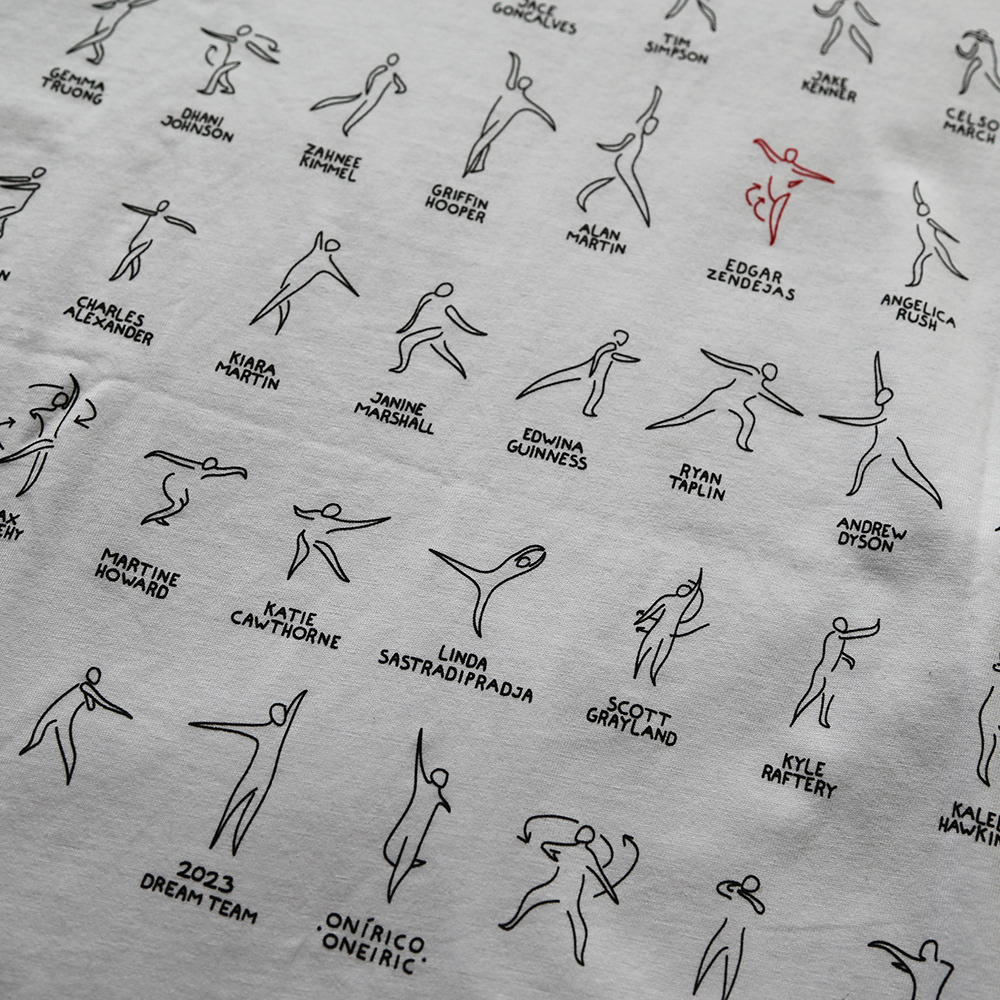 JACE
GONCALVES
TIM
SIMPSON
JAKE
KENNER
CELSO
MARCH
GEMMA
TRUONG
DHANI
JOHNSON
ZAHNEE
KIMMEL
GRIFFIN
HOOPER
ALAN
MARTIN
EDGAR
ZENDEJAS
ANGELICA
RUSH
N
CHARLES
ALEXANDER
KIARA
MARTIN
JANINE
MARSHALL
EDWINA
GUINNESS
RYAN
TAPLIN
ANDREW
DYSON
AX
EHY
MARTINE
HOWARD
KATIE
CAWTHORNE
LINDA
SASTRADIPRADJA
SCOTT
GRAYLAND
KYLE
RAFTERY
KALE
HAWKIN
2023
DREAM TEAM
.ONÍRICO
.ONEIRIC.